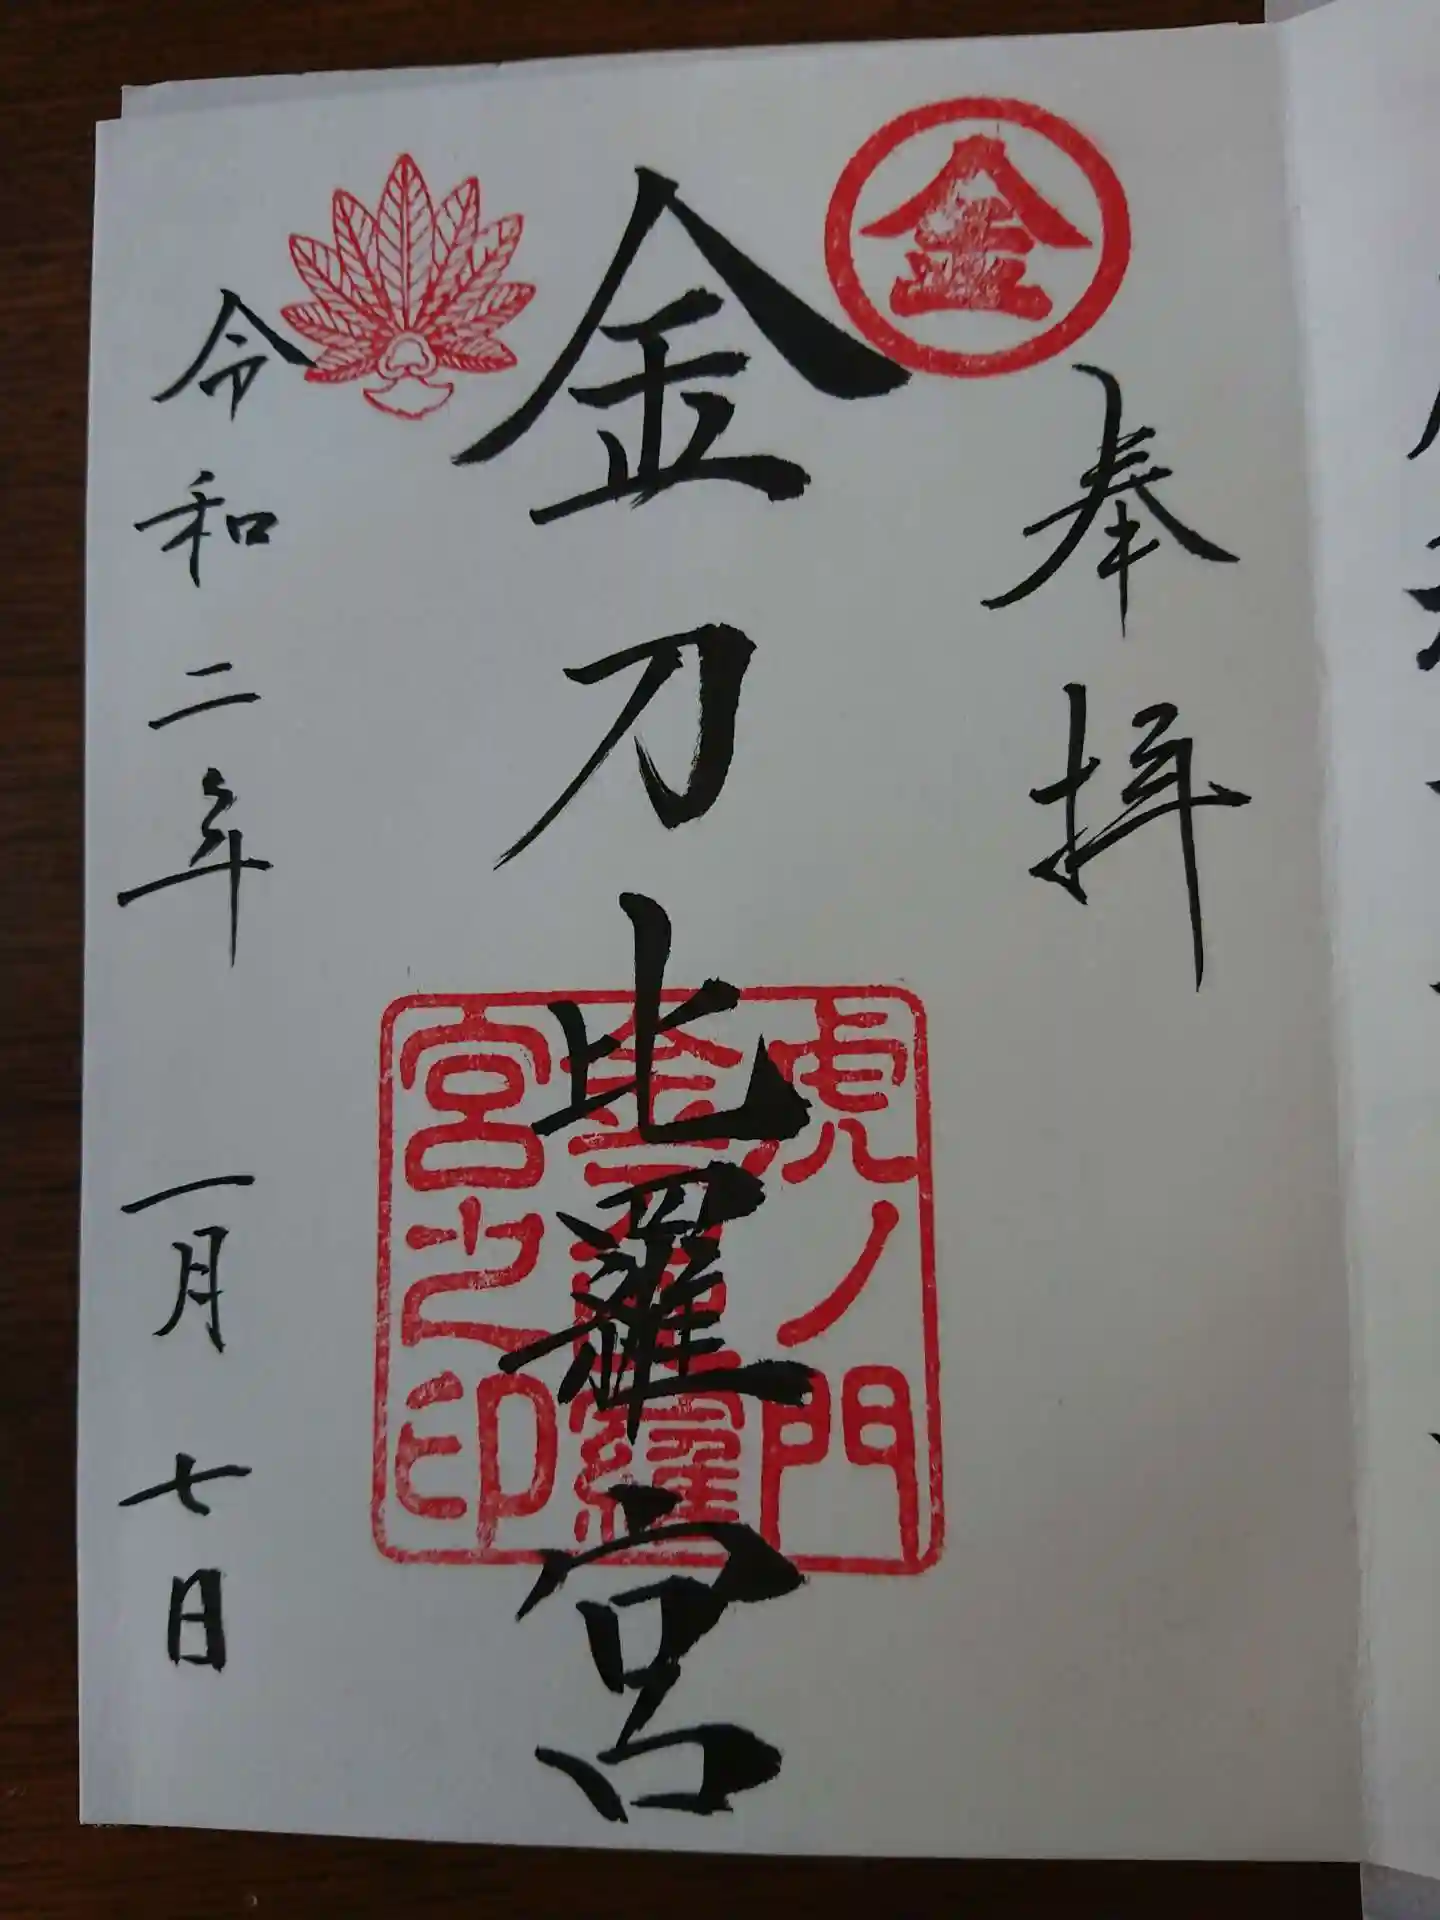 奉拝
金
金刀比羅宮
虎ノ門
金刀比羅
宮之印
令和二年 一月 七日